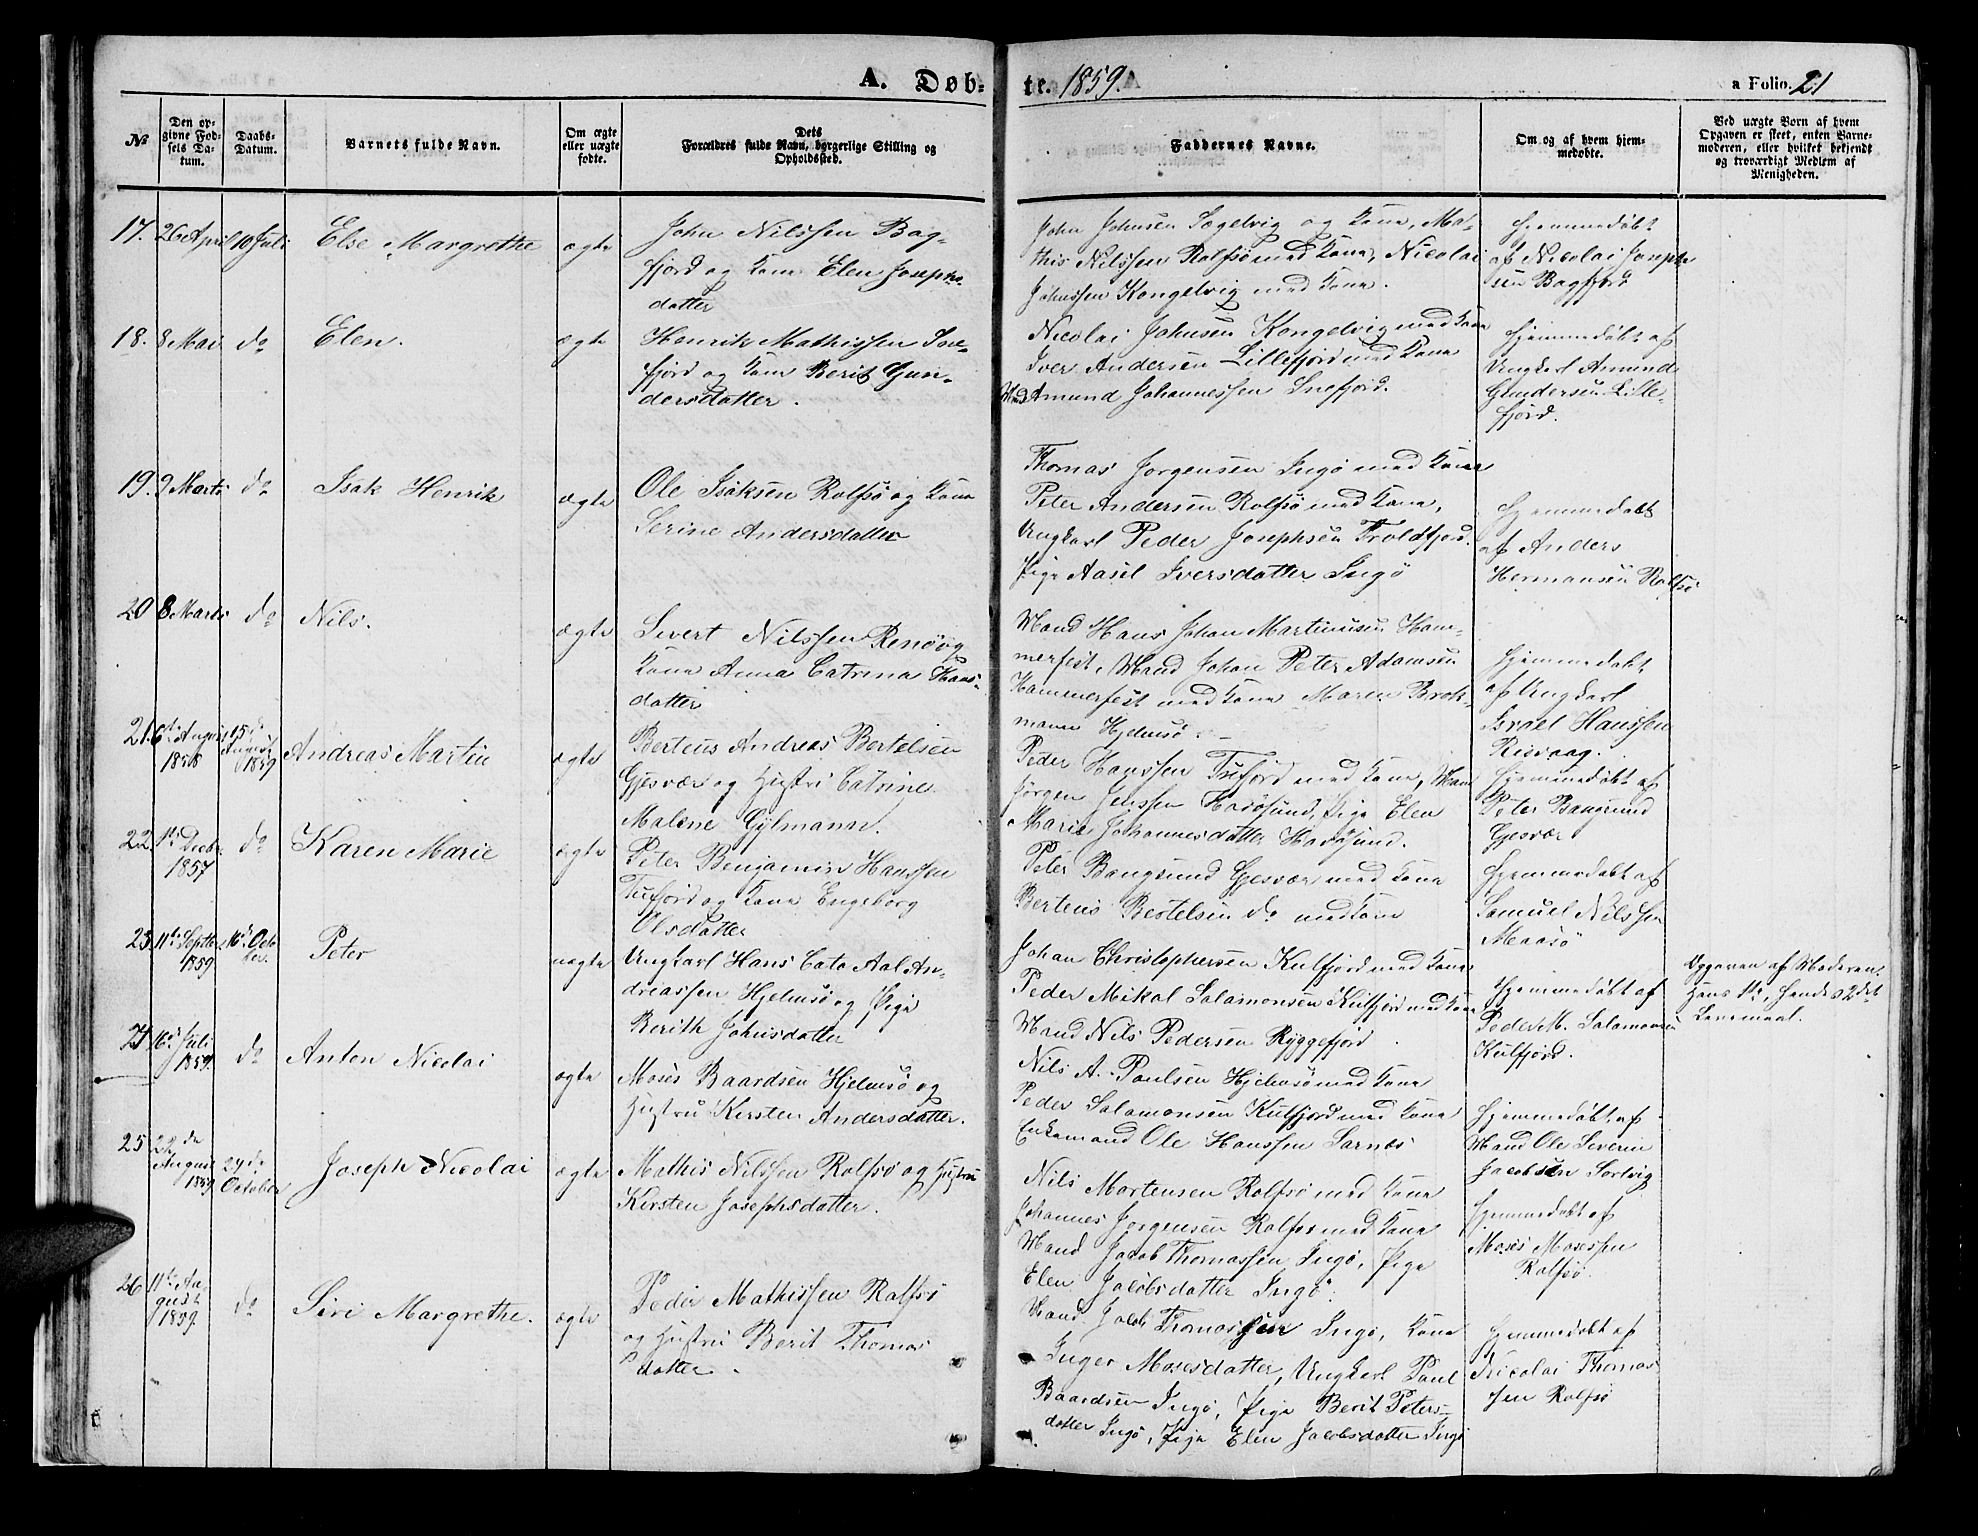 A. Døb-
te. 1859.
a Folio. 21
№
Den op-
givne Fød-
sels Da-
tum.
Daabs-
Datum.
Barnets fulde Navn.
Om ægte
eller uægte
fødte.
Dets
Forældres fulde Navn, borgerlige Stilling og
Opholdssted.
Faddernes Navne.
Om og af hvem hjem-
medøbte.
Ved uægte Børn af hvem
Opgaven er skeet, enten Barne-
moderen, eller hvilket bekjendt
og troværdigt Medlem af
Menigheden.
17. 26 April 10 Juli Else Margrethe ægte
John Nilssen Bag-
fjord og Kone Elen Josephs-
datter
John Johnsen Sægelvig og Kone, Ma-
this Nilssen Rolfsø med Kone, Nicolai
Johnssen Kongelvig med Kone.
Hjemmedøbt
af Nicolai Joseph-
sen Bagfjord
18. 8 Mai do Elen. ægte
Henrik Mathissen Sne-
fjord og Kone Berit Gun-
dersdatter.
Nicolai Johnsen Kongelvig med Kone
Iver Andersen Lillefjord med Kone
Mand Amund Johannessen Snefjord.
Hjemmedøbt af
Ungkarl Amund
Gundersen Lille-
fjord.
19. 9 Marts do Isak Henrik ægte
Ole Isaksen Rolfsø og Kone
Serine Andersdatter
Thomas Jørgensen Ingø med Kone
Peter Andersen Rolfsø med Kone,
Ungkarl Peder Josephsen Troldfjord.
Pige Aasel Iversdatter Ingø
Hjemmedøbt
af Anders
Hermansen Rolfsø
20 8 Marts do Nils. ægte
Sivert Nilssen Renø og
Kone Anna Catrina Hans-
datter
Mand Hans Johan Martinusen Ham-
merfest, Mand Johan Peter Adamsen
Hammerfest med Kone Maren Brok-
mann Hjelmsø.
Hjemmedøbt
af Ungkarl
Israel Hanssen
Risvaag.
21. 6te August 1858 15de August 1859 Andreas Martin ægte
Berteus Andreas Bertelsen
Gjesvær og Hustru Catrine
Malene Gylmann.
Peder Hanssen Tufjord med Kone, Mand
Jørgen Jenssen Havøsund, Pige Elen
Marie Johannesdatter Havøsund.
Hjemmedøbt af
Peter Bangsund
Gjesvær
22 1ste Decbr 1857 do Karen Marie ægte
Peter Benjamin Hanssen
Tufjord og Kone Engeborg
Olsdatter
Peter Bangsund Gjesvær med Kone
Berteus Bertelsen do med Kone
Hjemmedøbt af
Samuel Nilssen
Maasø
23 11te Septbr 1859 16de Octo-
ber. Peter uægte
Ungkarl Hans Cato Aal An-
dreassen Hjelmsø og Pige
Berith Johnsdatter
Johan Christophersen Kulfjord med Kone
Peder Mikal Salamonsen Kulfjord med Kone
Mand Nils Pedersen Ryggefjord
Hjemmedøbt af
Peder M. Salamonsen
Kulfjord.
Opgaven af Moderen.
Hans 1ste, Hendes 2det
Leiermaal.
24 16de Juli 1859. do Anton Nicolai ægte
Moses Baardsen Hjelmsø og
Hustru Kirsten Andersdatter.
Nils A. Paulsen Hjelmsø med Kone
Peder Salamonsen Kulfjord med Kone
Enkemand Ole Hanssen Sarnes
Hjemmedøbt af
Mand Ole Severin
Jacobsen Sortvig
25 22de August 1859 24de October Joseph Nicolai ægte
Mathis Nilssen Rolfsø og Hustru
Kirsten Josephsdatter.
Nils Mortensen Rolfsø med Kone
Johannes Jørgensen Rolfsø med Kone
Mand Jacob Thomassen Ingø, Pige
Elen Jacobsdatter Ingø.
Hjemmedøbt af
Moses Mosessen
Rolfsø.
26 11te Au-
gust 1859 do Siri Margrethe. ægte
Peder Mathissen Rolfsø
og Hustru Berit Thomas-
datter.
Mand Jacob Thomassen Ingø, Kone
Inger Mosesdatter, Ungkarl Paul
Baardsen Ingø, Pige Berit Peters-
datter Ingø, Pige Elen Jacobsdatter Ingø
Hjemmedøbt af
Nicolai Thomas-
sen Rolfsø